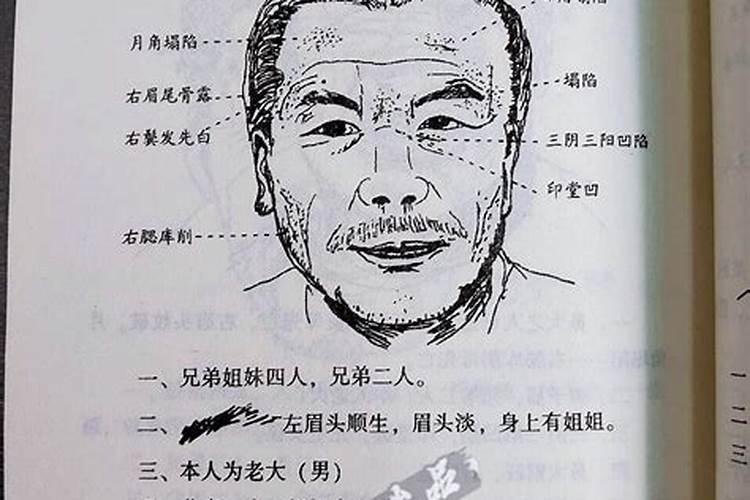 月角塌陷
右眉尾骨露
右鬓发先白
右腮库削
塌陷
三阴三阳凹陷
印堂凹
一、兄弟姐妹四人，兄弟二人。
二、左眉头顺生，眉头淡，身上有姐姐。
三、本人为老大（男）